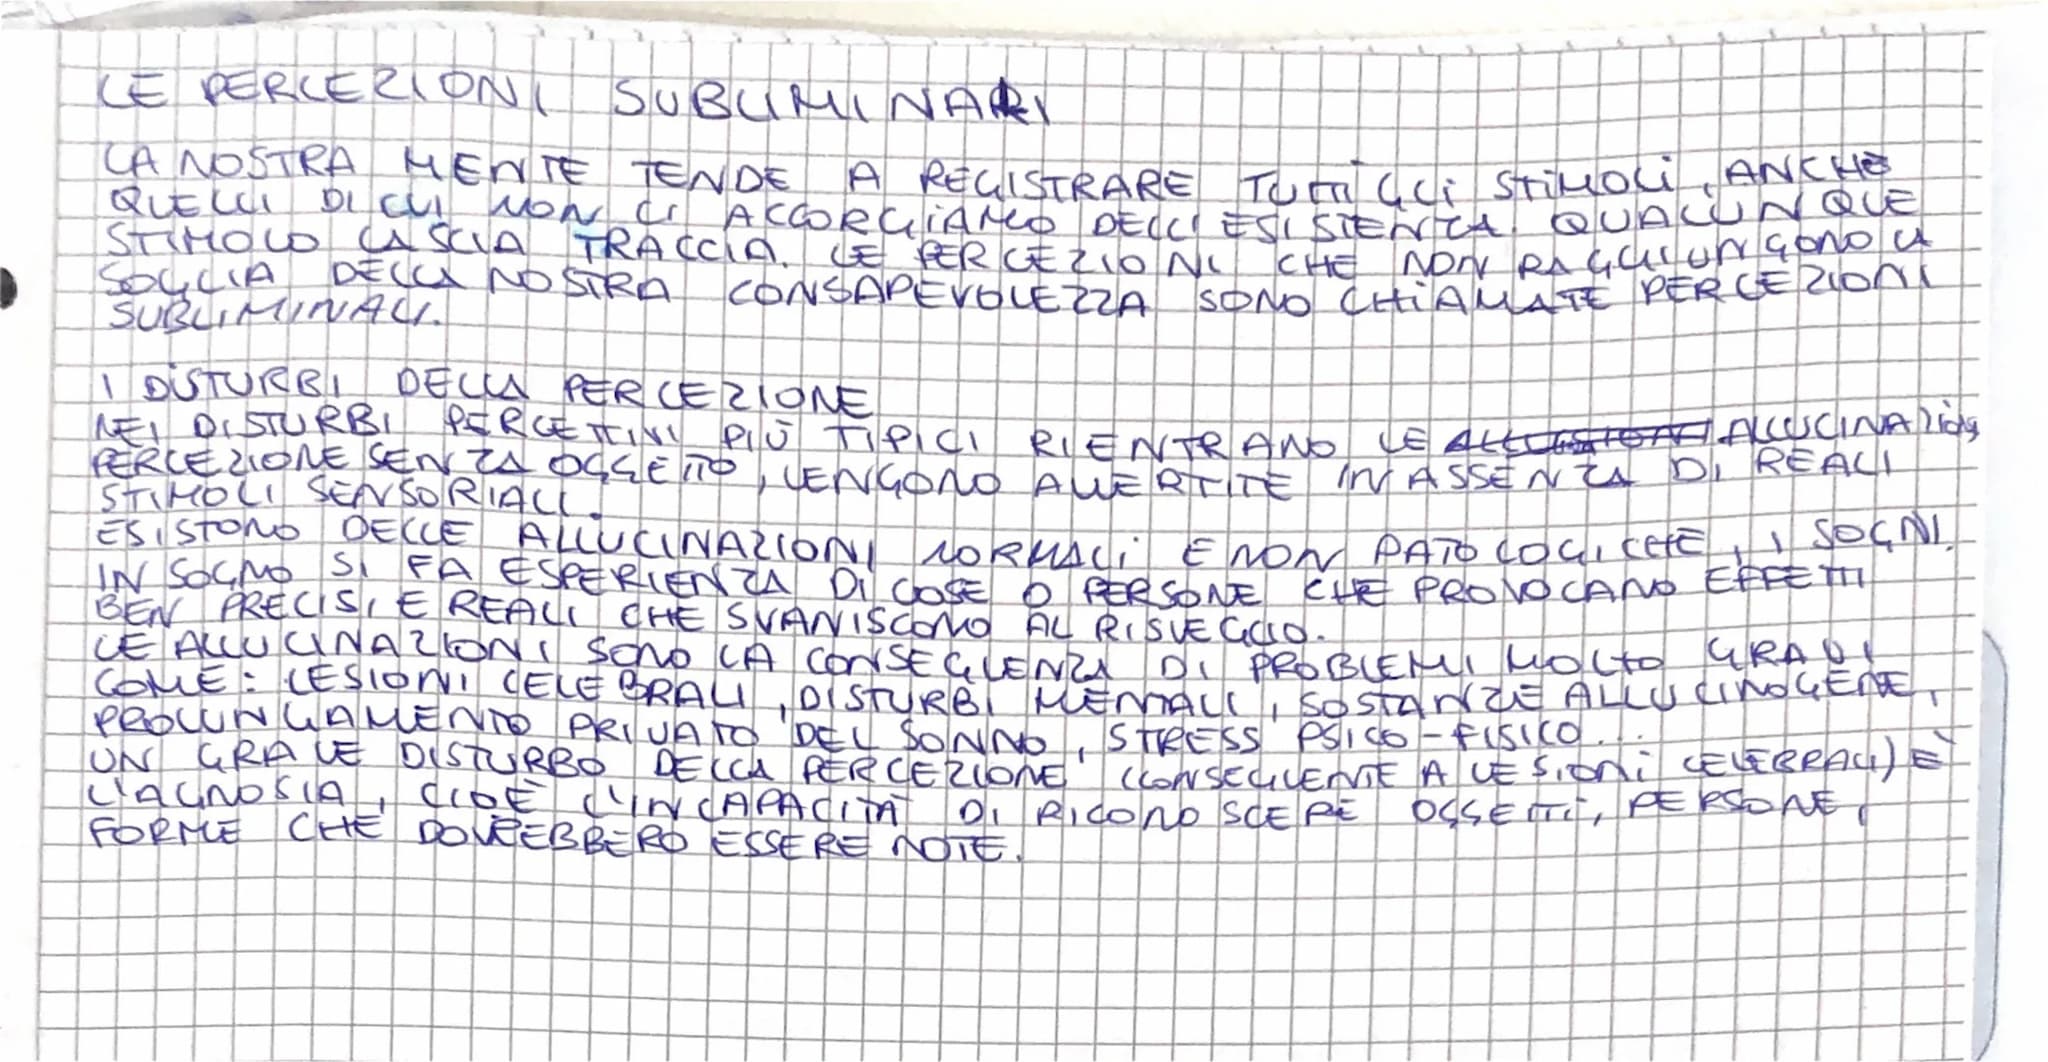 LE PERCEZIONI SUBLIMINARI
LA NOSTRA MENTE TENDE A REGISTRARE TUTTI GLI STIMOLI, ANCHE
QUELLI DI CUI NON CI ACCORGIAMO DELL'ESISTENZA. QUALUNQUE
STIMOLO LASCIA TRACCIA. LE PERCEZIONI CHE NON RAGGIUNGONO LA
SOGLIA DELLA NOSTRA CONSAPEVOLEZZA SONO CHIAMATE PERCEZIONI
SUBLIMINALI.
I DISTURBI DELLA PERCEZIONE
NEI DISTURBI PERCETTIVI PIÙ TIPICI RIENTRANO LE ALLUCINAZIONI
PERCEZIONE SENZA OGGETTO, VENGONO AVVERTITE IN ASSENZA DI REALI
STIMOLI SENSORIALI.
ESISTONO DELLE ALLUCINAZIONI NORMALI E NON PATOLOGICHE, I SOGNI.
IN SOGNO SI FA ESPERIENZA DI COSE O PERSONE CHE PROVOCANO EFFETTI
BEN PRECISI E REALI CHE SVANISCONO AL RISVEGLIO.
LE ALLUCINAZIONI SONO LA CONSEGUENZA DI PROBLEMI MOLTO GRAVI
COME: LESIONI CELEBRALI, DISTURBI MENTALI, SOSTANZE ALLUCINOGENE,
PROLUNGAMENTO PRIVATO DEL SONNO, STRESS PSICO-FISICO...
UN GRAVE DISTURBO DELLA PERCEZIONE (CONSEGUENTE A LESIONI CELEBRALI) È
L'AGNOSIA, CIOÈ L'INCAPACITÀ DI RICONOSCERE OGGETTI, PERSONE,
FORME CHE DOVREBBERO ESSERE NOTE.